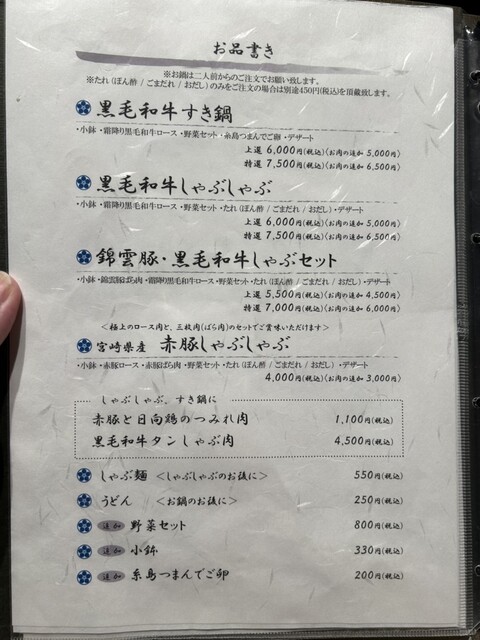 お品書き
※お鍋は二人前からのご注文でお願い致します。
※たれ（ぽん酢 / ごまだれ / おだし）のみをご注文の場合は別途450円(税込)を頂戴致します。
黒毛和牛すき鍋
・小鉢・霜降り黒毛和牛ロース・野菜セット・糸島つまんでご卵・デザート
上選 6,000円(税込)〈お肉の追加 5,000円〉
特選 7,500円(税込)〈お肉の追加 6,500円〉
黒毛和牛しゃぶしゃぶ
・小鉢・霜降り黒毛和牛ロース・野菜セット・たれ（ぽん酢 / ごまだれ / おだし）・デザート
上選 6,000円(税込)〈お肉の追加 5,000円〉
特選 7,500円(税込)〈お肉の追加 6,500円〉
錦雲豚・黒毛和牛しゃぶセット
・小鉢・錦雲豚ばら肉・霜降り黒毛和牛ロース・野菜セット・たれ（ぽん酢 / ごまだれ / おだし）・デザート
上選 5,500円(税込)〈お肉の追加 4,500円〉
特選 7,000円(税込)〈お肉の追加 6,000円〉
＜極上のロース肉と、三枚肉(ばら肉)のセットでご賞味いただけます＞
宮崎県産 赤豚しゃぶしゃぶ
・小鉢・赤豚ロース・赤豚ばら肉・野菜セット・たれ（ぽん酢 / ごまだれ / おだし）・デザート
4,000円(税込)〈お肉の追加 3,000円〉
しゃぶしゃぶ、すき鍋に
赤豚と日向鶏のつみれ肉 1,100円(税込)
黒毛和牛タンしゃぶ肉 4,500円(税込)
しゃぶ麺 ＜しゃぶしゃぶのお後に＞ 550円(税込)
うどん ＜お鍋のお後に＞ 250円(税込)
追加 野菜セット 800円(税込)
追加 小鉢 330円(税込)
追加 糸島つまんでご卵 200円(税込)